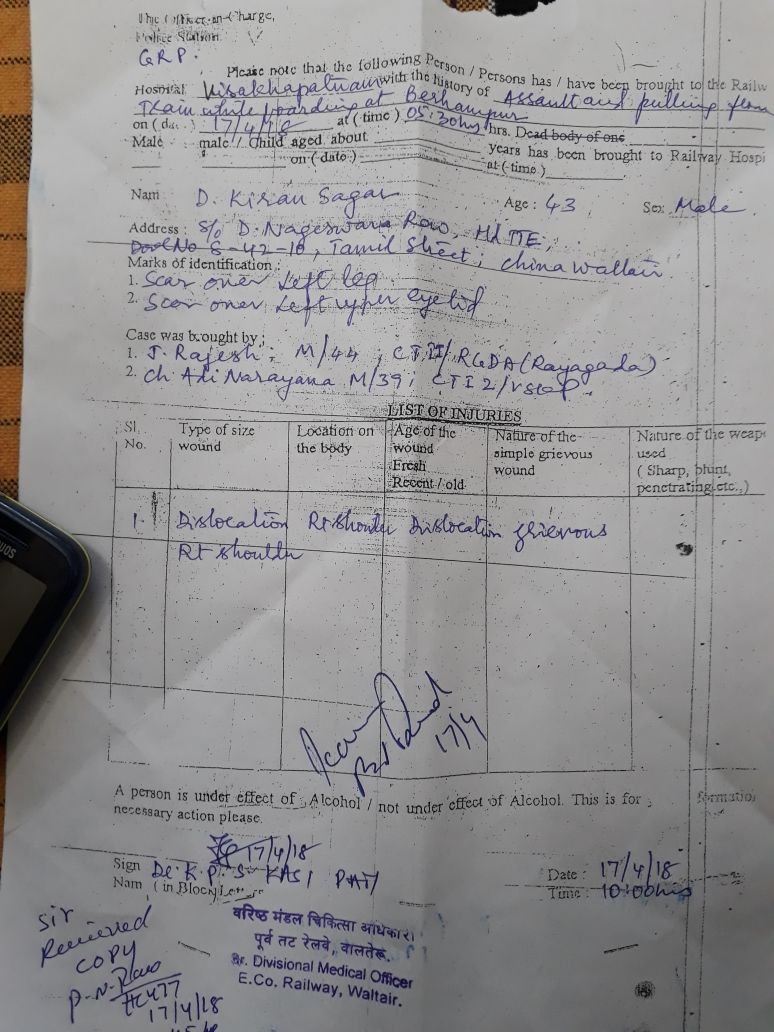 The Officer-in-Charge,
Police Station.
GRP.
Please note that the following Person / Persons has / have been brought to the Railw
Hospital Visakhapatnam with the history of Assault and pulling from
Train while boarding at Berhampur
on (date) 17/4/18 at ( time ) 05:30hrs hrs. Dead body of one
Male male / Child aged about years has been brought to Railway Hospi
on ( date ) at ( time )
Nam D. Kiran Sagar Age : 43 Sex Male
Address : S/o D. Nageswara Row, Hd TTE,
Door No 8-42-10, Tamil Street, China Waltair
Marks of identification :
1. Scar over Left leg
2. Scar over Left upper eyelid
Case was brought by ;
1. J. Rajesh; M/44, CTII/RGDA (Rayagada)
2. Ch Adi Narayana M/39; CTI2/VSKP.
LIST OF INJURIES
Sl. No. Type of size wound Location on the body Age of the wound Fresh Recent / old Nature of the simple grievous wound Nature of the weap used ( Sharp, blunt, penetrating etc.,)
1. Dislocation Rt shoulder Dislocation grievous
Rt shoulder
17/4
A person is under effect of Alcohol / not under effect of Alcohol. This is for formation
necessary action please.
17/4/18
Sign Dr. K.P.S KASI PATI
Nam ( in Block Letters
Date : 17/4/18
Time : 10:00hrs
वरिष्ठ मंडल चिकित्सा अधिकारी
पूर्व तट रेलवे, वालतेरू.
Sr. Divisional Medical Officer
E.Co. Railway, Waltair.
Sir
Received
COPY
P.N.Rao
HC477
17/4/18